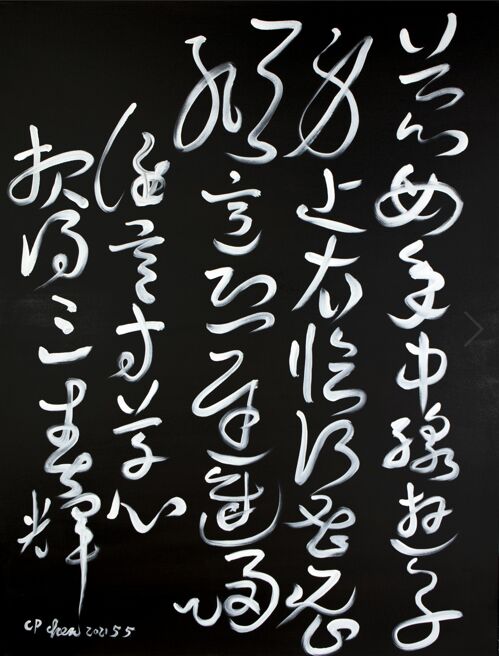 慈母手中線遊子
身上衣臨行密密
縫意恐遲遲歸
誰言寸草心
報得三春輝
CP Chen 2021 5 5